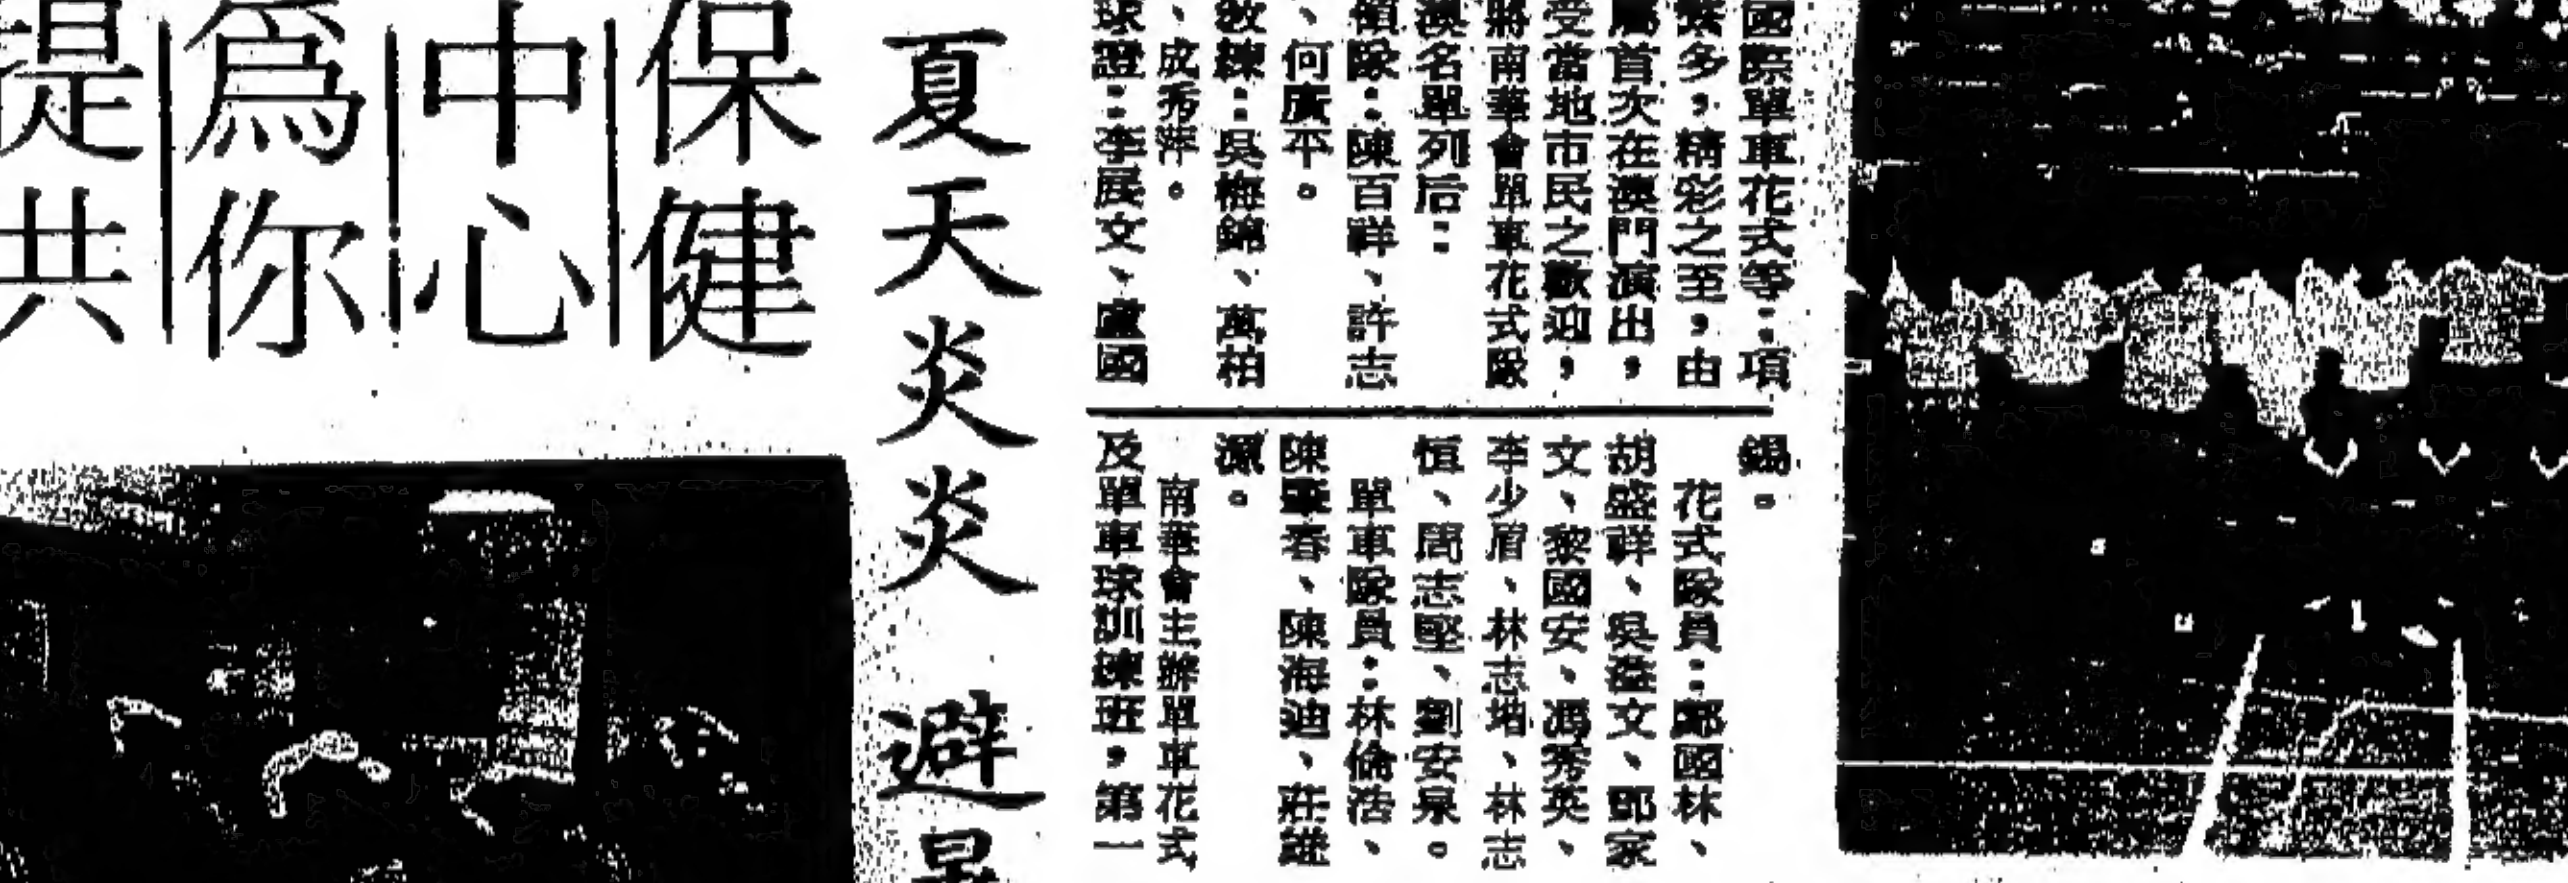 國際單車花式等:項
繁多,精彩之至,由
屬首次在澳門演出,
受當地市民之歡迎,
將南華會單車花式隊
澳名單列后:
領隊:陳百祥、許志
、何廣平。
教練:吳梅錦、萬柏
、成秀萍。
球證:李展文、盧國
錫。
花式隊員:鄭國林、
胡盛祥、吳溢文、鄧家
文、黎國安、馮秀英、
李少眉、林志培、林志
恒、周志堅、劉安泉。
單車隊員:林倫浩、
陳肇春、陳海迪、莊雄
源。
南華會主辦單車花式
及單車球訓練班,第一
夏天炎炎 避暑
保健
中心
爲你
提共